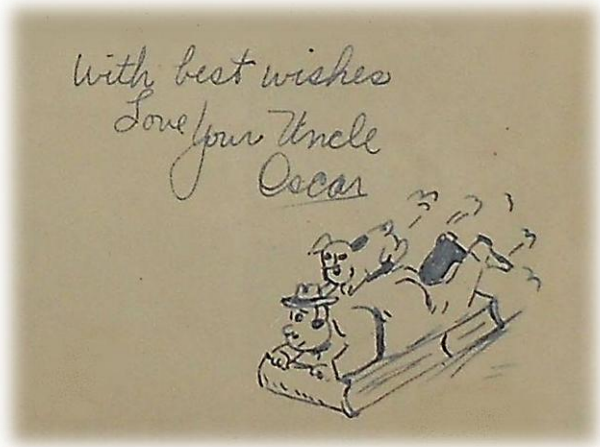 With best wishes
Love Your Uncle
Oscar